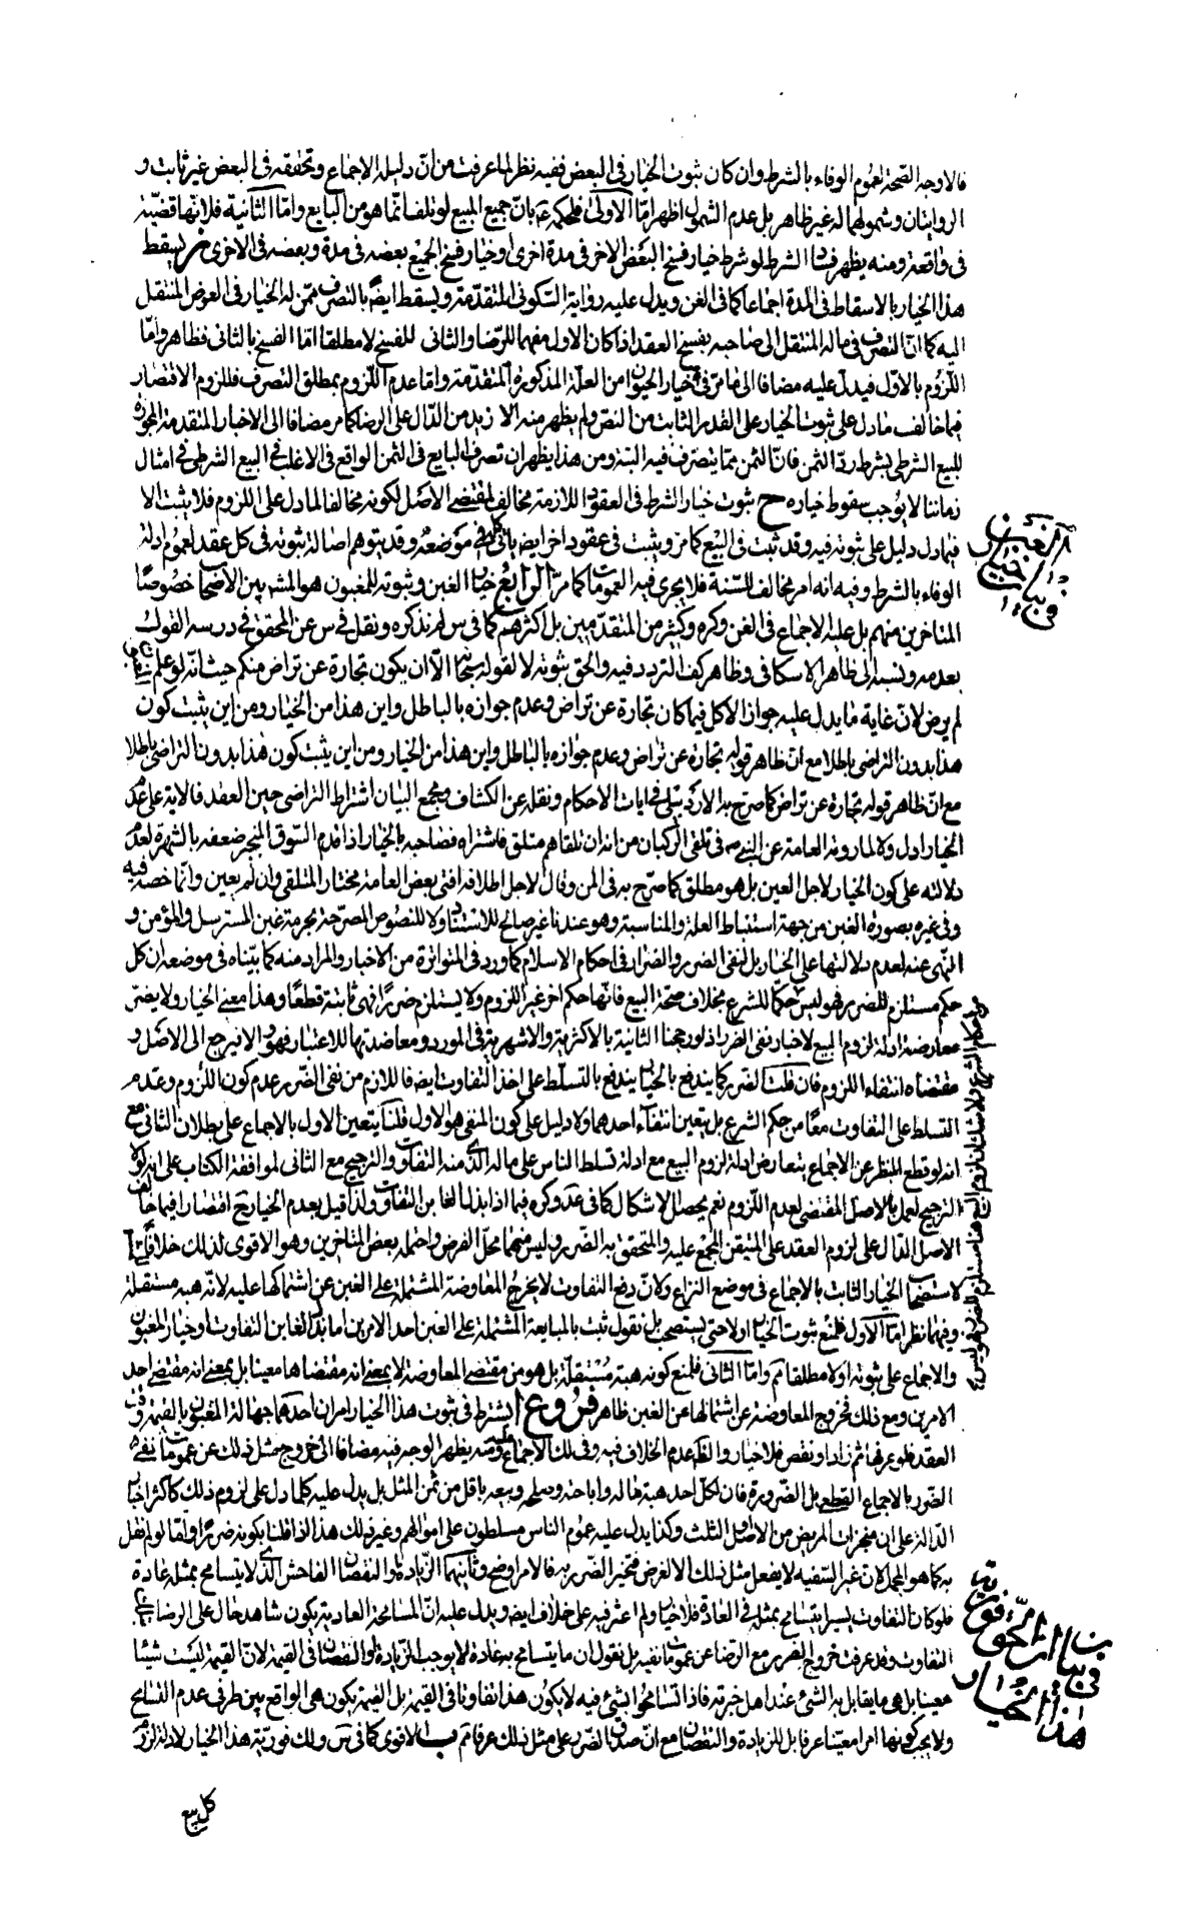 فالاوجه الصحة لعموم الوفاء بالشرط وان كان ثبوت الخيار فى البعض ففيه نظر لما عرفت من انّ دليله الاجماع وتحققه فى البعض غير ثابت و
الروايتان وشمولهما له غير ظاهر بل عدم الشمول اظهر امّا الاولىٰ فلحكمه بانّ جميع المبيع لو تلف انّما هو من البايع وامّا الثانية فلانّها قضيّة
فى واقعة ومنه يظهر فساد الشرط لو شرط خيار فسخ البعض الاخر فى مدة اخرى او خيار فسخ الجميع بعضه فى مدة وبعضه فى الاخرى ز يسقط
هذا الخيار بالاسقاط فى المدة اجماعا كما فى الغن ويدل عليه رواية السكونى المتقدمة ويسقط ايضا بالتصرف ممّن له الخيار فى العوض المنتقل
اليه كما انّ التصرف فى ماله المنتقل الى صاحبه يفسخ العقد اذا كان الاول مفهما للرّضا والثانى للفسخ لا مطلقا امّا الفسخ بالثانى فظاهر وامّا
اللّزوم بالاوّل فيدل عليه مضافا الى ما مرّ فى خيار الحيوان من العلة المذكورة المتقدمة وامّا عدم اللّزوم بمطلق التصرف فللزوم الاقتصار
فيما خالف ما دل على ثبوت الخيار على القدر الثابت من النصّ ولم يظهر منه الا زيد من الدّال على الرضا كما مر مضافا الى الاخبار المتقدمة المجوزة
للبيع الشرطى بشرط ردّ الثمن فانّ الثمن ممّا يتصرّف فيه البتة ومن هذا يظهر ان تصرف البايع فى الثمن الواقع فى الاغلب فى البيع الشرطى فى امثال
زماننا لا يوجب سقوط خياره ح ثبوت خيار الشرط فى العقود اللازمة مخالف لمقتضى الاصل لكونه مخالفا لما دل على اللزوم فلا يثبت الا
فيما دل دليل على ثبوته فيه وقد ثبت فى البيع كما مر ويثبت فى عقود اخر ايضا ياتى كل فى موضعه وقد يتوهم اصالة ثبوته فى كل عقد لعموم ادلة
الوفاء بالشرط وفيه انه امر مخالف للسّنة فلا يجرى فيه العمومات كما مرّ الرابع خيار الغبن وثبوته للمغبون هو المشهور بين الاصحاب خصوصًا
المتاخرين منهم بل عليه الاجماع فى الغن وكره وكثير من المتقدّمين بل اكثرهم كما فى س لم يذكره ونقل فى س عن المحقق فى درسه القول
بعدمه ونسبه الى ظاهر الاسكافى وظاهر كف التردد فيه والحق ثبوته لا لقوله سبحانه الّا ان يكون تجارة عن تراض منكم حيث انّه لو علم
لم يرض لانّ غاية ما يدل عليه جواز الاكل فيما كان تجارة عن تراض وعدم جوازه بالباطل واين هذا من الخيار ومن اين يثبت كون
هذا بدون التراضى باطلا مع انّ ظاهر قوله تجارة عن تراض وعدم جوازه بالباطل واين هذا من الخيار ومن اين يثبت كون هذا بدون التراضى باطلا
مع انّ ظاهر قوله تجارة عن تراض كما صرّح به الاردبيلى فى ايات الاحكام ونقله عن الكشاف ومجمع البيان اشتراط التراضى حين العقد فالاية على عدم
الخيار ادل ولا لما روته العامة عن النبى ص فى تلقى الركبان من انه ان تلقاهم متلق فاشتراه فصاحبه بالخيار اذا قدم السّوق المنجبر ضعفه بالشهرة لعدم
دلالته على كون الخيار لاجل الغبن بل هو مطلق كما صرّح به فى المن وقال لاجل اطلاقه افتى بعض العامة بخيار المتلقى وان لم يغبن وانّما خصّه فيه
وفى غيره بصورة الغبن من جهة استنباط العلة والمناسبة وهو عندنا غير صالح للاستناد ولا للنصوص المصرّحة بحرمة غبن المسترسل والمؤمن و
النّهى عنه لعدم دلالتها على الخيار بل لنفى الضرر والضرار فى احكام الاسلام كما ورد فى المتواترة من الاخبار والمراد منه كما بيّناه فى موضعه ان كل
حكم مستلزم للضرر فهو ليس حكما للشرع بخلاف صحّة البيع فانّها حكم اخر غير اللزوم ولا يستلزم ضررًا فهى ثابتة قطعًا وهذا معنى الخيار ولا يضرّ
معارضة ادلة لزوم البيع لاخبار نفى الضرر اذ لو رجحنا الثانية بالاكثرية والاشهرية فى المورد ومعاضدتها للاعتبار فهو والا فيرجع الى الاصل و
مقتضاه انتفاء اللزوم فان قلت الضرر كما يندفع بالخيار يندفع بالتسلّط على اخذ التفاوت ايضا فاللازم من نفى الضّرر عدم كون اللزوم وعدم
التسلط على التفاوت معًا من حكم الشرع بل يتعين انتفاء احدهما ولا دليل على كون المنفى هو الاول قلنا يتعين الاول بالاجماع على بطلان الثانى مع
انه لو قطع النظر عن الاجماع يتعارض ادلة لزوم البيع مع ادلة تسلط الناس على ماله الذى منه التفاوت والترجيح مع الثانى لموافقة الكتاب على انه لولا
الترجيح لعمل بالاصل المقتضى لعدم اللّزوم نعم يحصل الاشكال كما فى عد وكره فيما اذا بذل الغابن التفاوت ولذا قيل بعدم الخيار ح اقتصارا فيما خالف
الاصل الدّال على لزوم العقد على المتيقن المجمع عليه والمتحقق به الضّرر وليس منهما محلّ الفرض واحتمله بعض المتاخرين وهو الاقوى لذلك خلافا
لاستصحاب الخيار الثابت بالاجماع فى موضع النزاع ولانّ دفع التفاوت لا يخرج المعاوضة المشتملة على الغبن عن اشتمالها عليه لانّه هبة مستقلة
وفيهما نظر امّا الاول فلمنع ثبوت الخيار اولا حتى يستصحب بل نقول ثبت بالمبايعة المشتملة على الغبن احد الامرين اما بذل الغابن التفاوت او خيار المغبون
والاجماع على ثبوته اولا مطلقا ثم وامّا الثانى فلمنع كونه هبة مستقلّة بل هو من مقتضى المعاوضة لا بمعنى انه مقتضاها معينا بل بمعنى انه مقتضى احد
الامرين ومع ذلك فخروج المعاوضة عن اشتمالها عن الغبن ظاهر فروع ا يشترط فى ثبوت هذا الخيار امران احدهما جهالة المغبون بالقيمة وقت
العقد فلو عرفها ثم زاد او نقص فلا خيار والظ عدم الخلاف فيه وفى لك الاجماع عليه ومنه يظهر الوجه فيه مضافا الى خروج مثل ذلك عن عمومات نفى
الضّرر بالاجماع القطعى بل الضّرورة فان لكل احد هبة ماله واباحته وصلحه وبيعه باقل من ثمن المثل بل يدل عليه كلما دل على لزوم ذلك كاكثر اخبار
الدّالة على ان منجزات المريض من الاصل والثلث وكذا يدل عليه عموم الناس مسلطون على اموالهم وغير ذلك هذا اذا قلنا بكونه ضررًا وامّا لو لم نقل
به كما هو المحل لانّ غير السّفيه لا يفعل مثل ذلك الا لغرض فتخير الضّرر به فالامر اوضح وثانيهما الزّيادة والنقصان الفاحش الذى لا يتسامح بمثله عادة
فلو كان التفاوت يسيرا يتسامح بمثله فى العادة فلا خيار ولم اعثر فيه على خلاف ايضا ويدل عليه انّ المسامحة العادية يكون شاهد حال على الرضا
التفاوت وقد عرفت خروج الضرر مع الرّضا عن عمومات نفيه بل نقول ان ما يتسامح به عادة لا يوجب الزّيادة والنقصان فى القيمة لانّ القيمة ليست شيئا
معينا بل هى ما يقابل به الشئ عند اهل خبرته فاذا تسامحوا الشئ فيه لا يكون هذا تفاوتا فى القيمة بل القيمة يكون هى الواقع بين طرفى عدم التسامح
ولا يجب كونها امرا معينا عرفا بل للزيادة والنقصان مع انّ صدق الضّرر على مثل ذلك عرفا ثم ب الاقوى كما فى س ولك فوريّة هذا الخيار لادلة لزوم
كل بيع
فى بيان خيار الغبن
حكم الشرع ولا شك ان لزوم البيع هنا مستلزم للضرر فهو ليس
فى بيان امر الحق فورية هذا الخيار